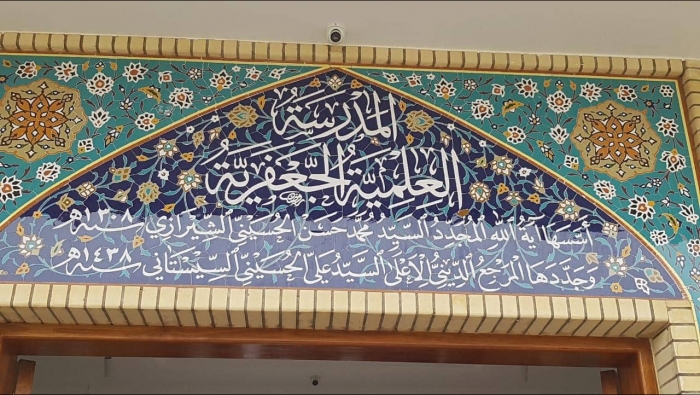 المدرسة
العلمية الجعفرية
أسسها آية الله المجدد السيد محمد حسن الحسيني الشيرازي سنة ١٣٠٨هـ
وجددها المرجع الديني الأعلى السيد علي الحسيني السيستاني سنة ١٤٣٨هـ